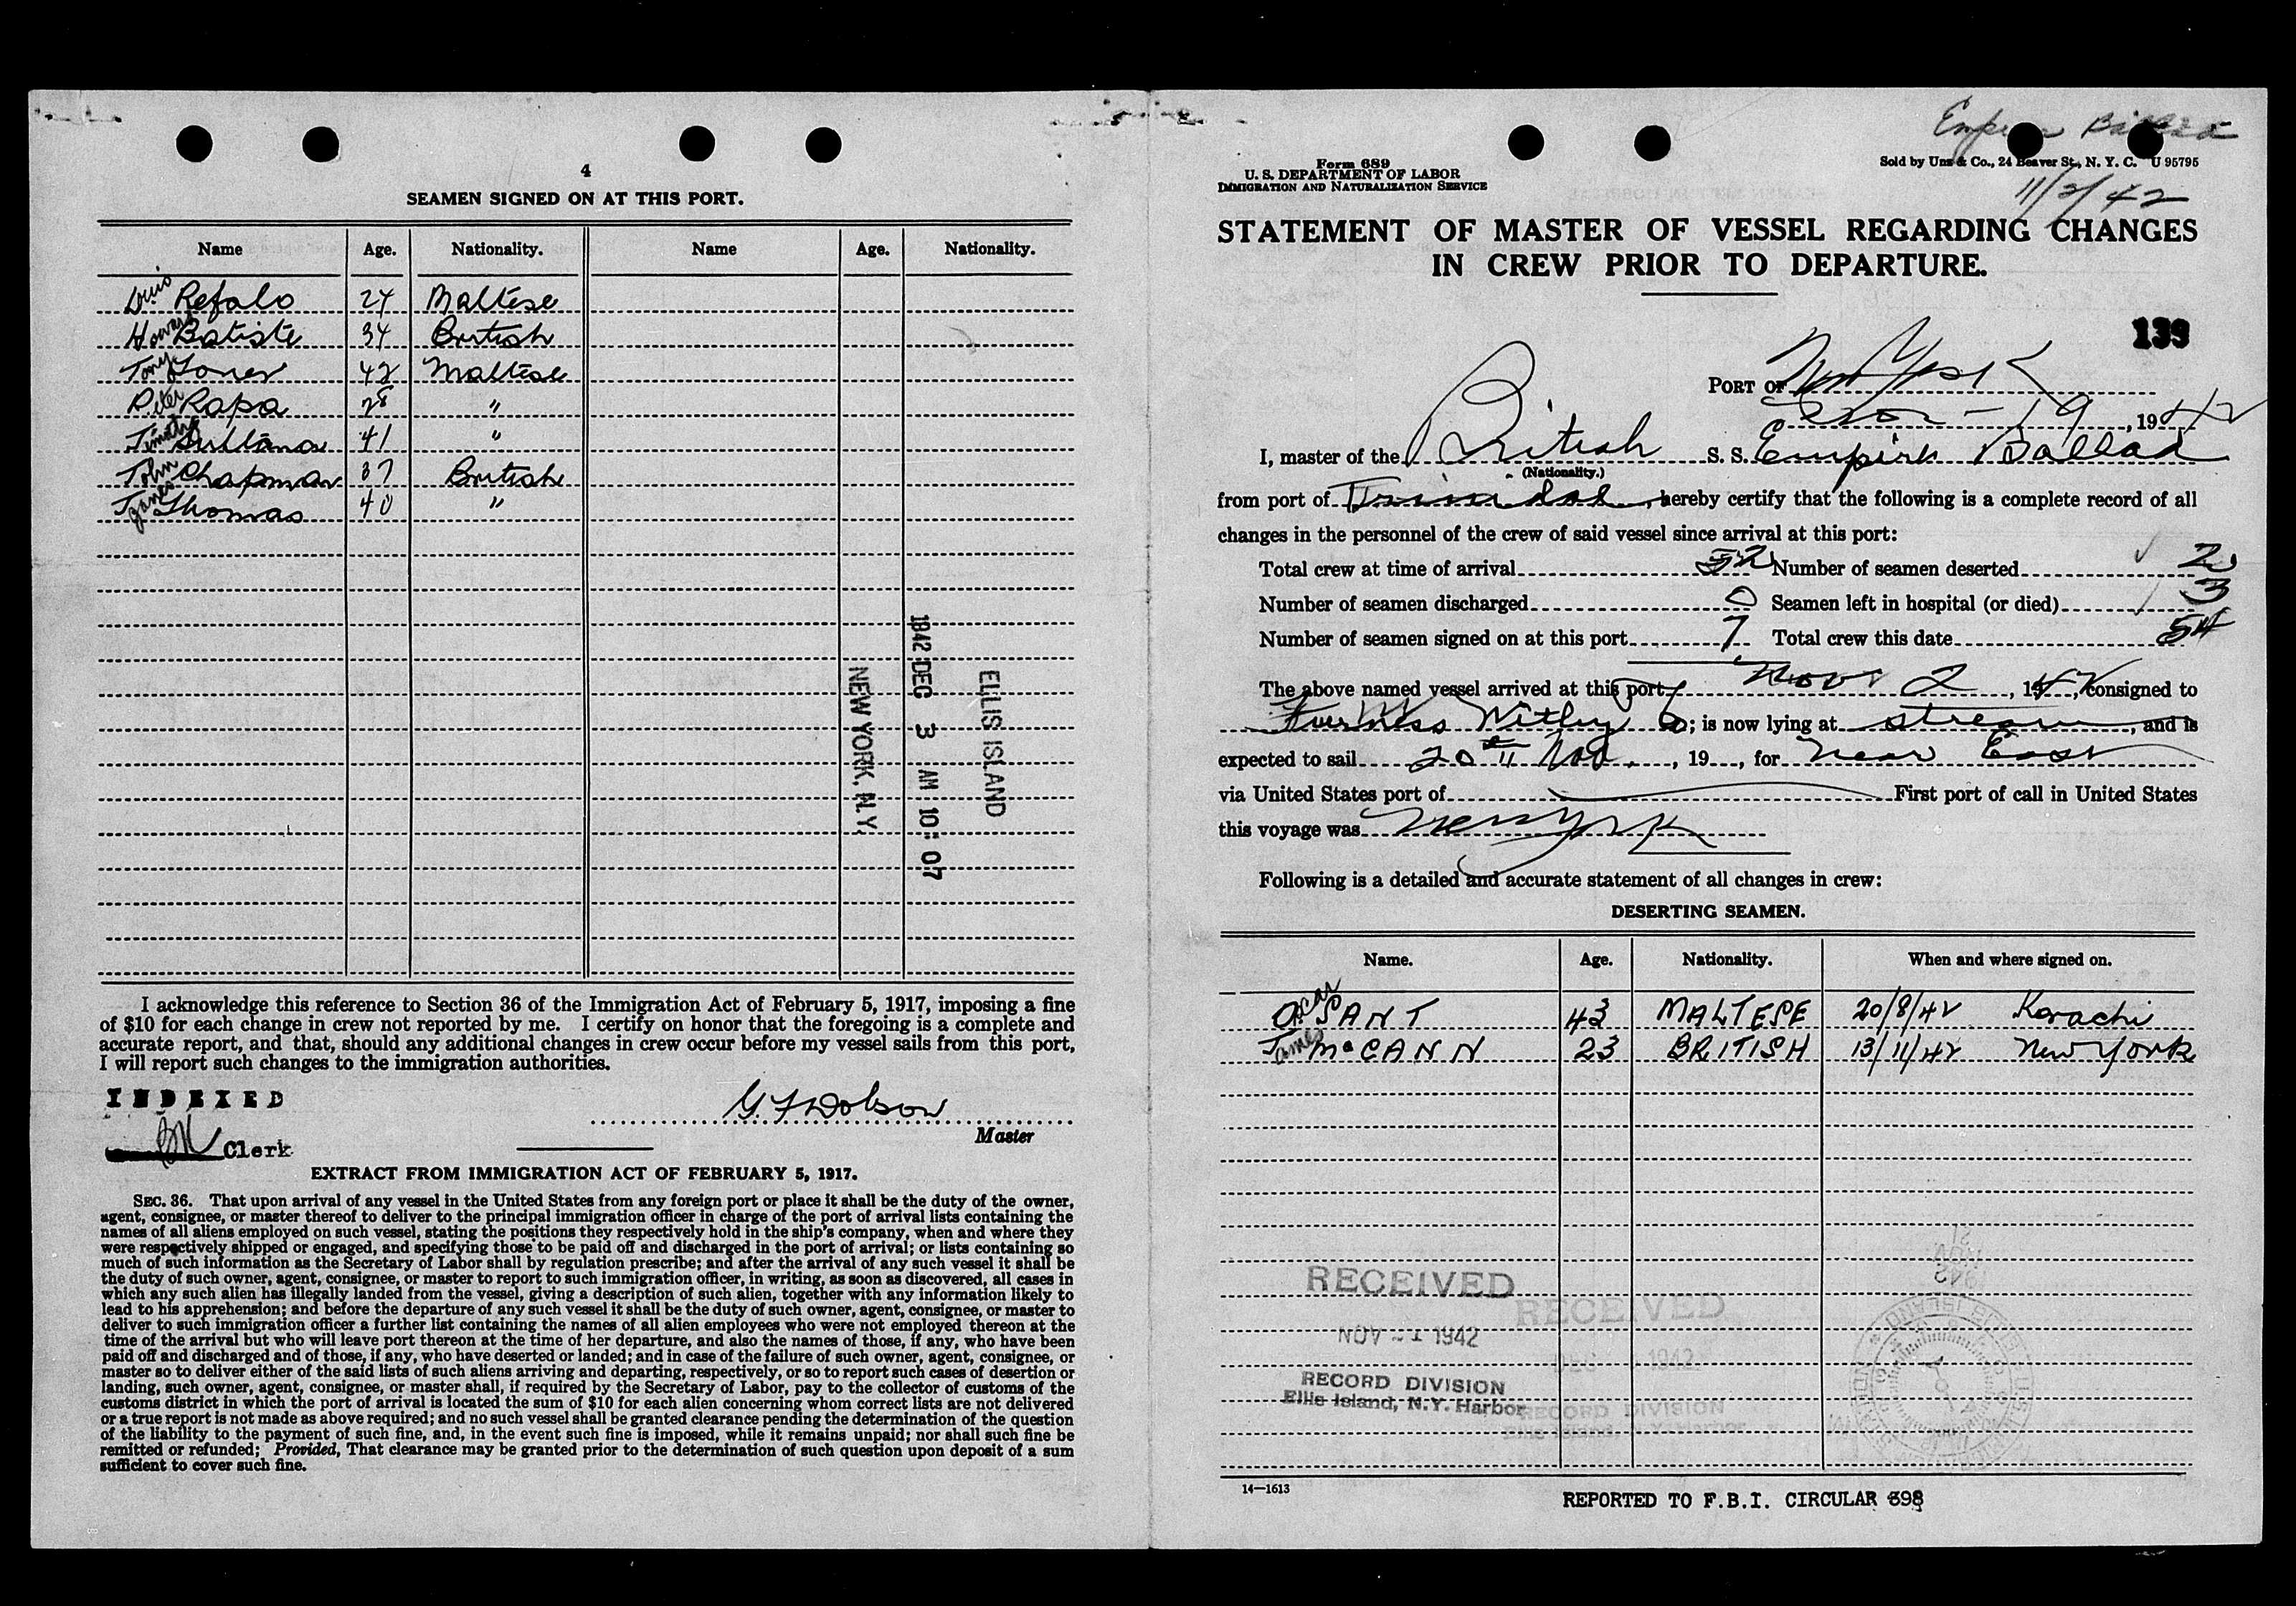 4
SEAMEN SIGNED ON AT THIS PORT.
Name Age. Nationality. Name Age. Nationality.
Louis Refalo 24 Maltese
Howard Batiste 34 British
Tony Jones 42 Maltese
Peter Rapa 28 "
Timothy Sultana 41 "
John Chapman 37 British
James Thomas 40 "
ELLIS ISLAND
1942 DEC 3 AM 10:07
NEW YORK, N.Y.
I acknowledge this reference to Section 36 of the Immigration Act of February 5, 1917, imposing a fine
of $10 for each change in crew not reported by me. I certify on honor that the foregoing is a complete and
accurate report, and that, should any additional changes in crew occur before my vessel sails from this port,
I will report such changes to the immigration authorities.
INDEXED
Clerk
G. F. Dobson
Master
EXTRACT FROM IMMIGRATION ACT OF FEBRUARY 5, 1917.
SEC. 36. That upon arrival of any vessel in the United States from any foreign port or place it shall be the duty of the owner,
agent, consignee, or master thereof to deliver to the principal immigration officer in charge of the port of arrival lists containing the
names of all aliens employed on such vessel, stating the positions they respectively hold in the ship's company, when and where they
were respectively shipped or engaged, and specifying those to be paid off and discharged in the port of arrival; or lists containing so
much of such information as the Secretary of Labor shall by regulation prescribe; and after the arrival of any such vessel it shall be
the duty of such owner, agent, consignee, or master to report to such immigration officer, in writing, as soon as discovered, all cases in
which any such alien has illegally landed from the vessel, giving a description of such alien, together with any information likely to
lead to his apprehension; and before the departure of any such vessel it shall be the duty of such owner, agent, consignee, or master to
deliver to such immigration officer a further list containing the names of all alien employees who were not employed thereon at the
time of the arrival but who will leave port thereon at the time of her departure, and also the names of those, if any, who have been
paid off and discharged and of those, if any, who have deserted or landed; and in case of the failure of such owner, agent, consignee, or
master so to deliver either of the said lists of such aliens arriving and departing, respectively, or so to report such cases of desertion or
landing, such owner, agent, consignee, or master shall, if required by the Secretary of Labor, pay to the collector of customs of the
customs district in which the port of arrival is located the sum of $10 for each alien concerning whom correct lists are not delivered
or a true report is not made as above required; and no such vessel shall be granted clearance pending the determination of the question
of the liability to the payment of such fine, and, in the event such fine is imposed, while it remains unpaid; nor shall such fine be
remitted or refunded; Provided, That clearance may be granted prior to the determination of such question upon deposit of a sum
sufficient to cover such fine.
Form 689
U. S. DEPARTMENT OF LABOR
IMMIGRATION AND NATURALIZATION SERVICE
Sold by Unz & Co., 24 Beaver St., N. Y. C. U 95795
11/2/42
STATEMENT OF MASTER OF VESSEL REGARDING CHANGES
IN CREW PRIOR TO DEPARTURE.
139
PORT OF New York
Nov - 19, 1942
I, master of the British S. S. Empire Ballad
(Nationality.)
from port of Trinidad, hereby certify that the following is a complete record of all
changes in the personnel of the crew of said vessel since arrival at this port:
Total crew at time of arrival 52 Number of seamen deserted 2
Number of seamen discharged 0 Seamen left in hospital (or died) 3
Number of seamen signed on at this port 7 Total crew this date 54
The above named vessel arrived at this port Nov 2, 1942, consigned to
Furness Withy Co; is now lying at stream, and is
expected to sail 20th Nov., 19, for Near East
via United States port of First port of call in United States
this voyage was New York
Following is a detailed and accurate statement of all changes in crew:
DESERTING SEAMEN.
Name. Age. Nationality. When and where signed on.
Oscar SANT 43 MALTESE 20/8/42 Karachi
James McCANN 23 BRITISH 13/11/42 New York
RECEIVED
NOV 1942
RECORD DIVISION
Ellis Island, N.Y. Harbor
RECEIVED
DEC 1942
RECORD DIVISION
Ellis Island, N.Y. Harbor
14—1613
REPORTED TO F.B.I. CIRCULAR 698